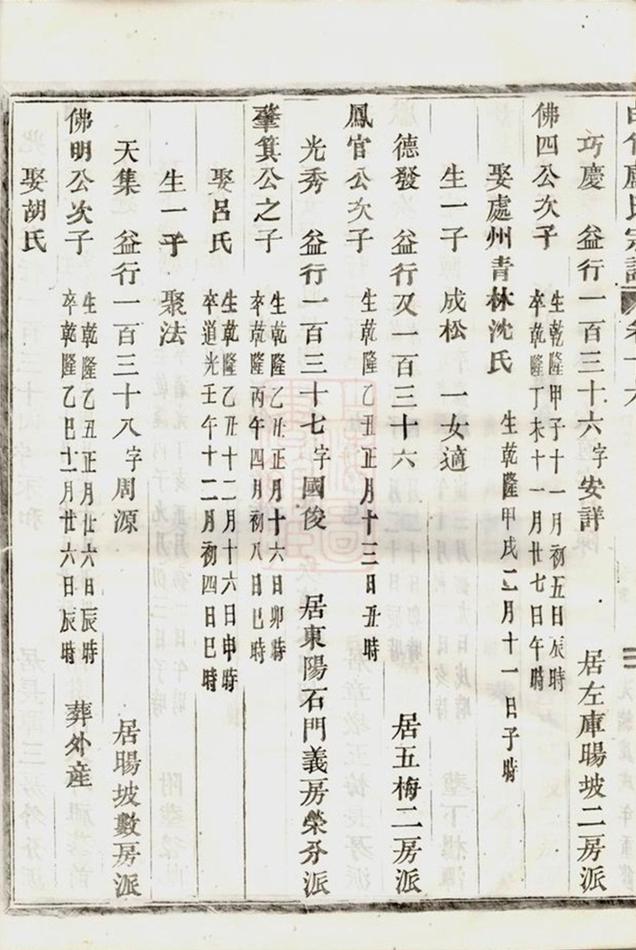 盧氏宗譜 卷十六
巧慶 益行一百三十六字安詳 居左庫暘坡二房派
佛四公次子 生乾隆甲子十一月初五日辰時
卒乾隆丁未十一月廿七日午時
娶處州青林沈氏 生乾隆甲戌二月十一日子時
生一子 成松 一女適
德發 益行又一百三十六 居五梅二房派
鳳官公次子 生乾隆乙丑正月十三日丑時
光秀 益行一百三十七字國俊 居東陽石門義房榮分派
肇箕公之子 生乾隆乙丑正月十六日卯時
卒乾隆丙午四月初八日巳時
娶呂氏 生乾隆乙丑十二月十六日申時
卒道光壬午十二月初四日巳時
生一子 聚法
天集 益行一百三十八字周源 居暘坡數房派
佛明公次子 生乾隆乙丑正月廿六日辰時
卒乾隆乙巳十一月廿六日辰時 葬外産
娶胡氏